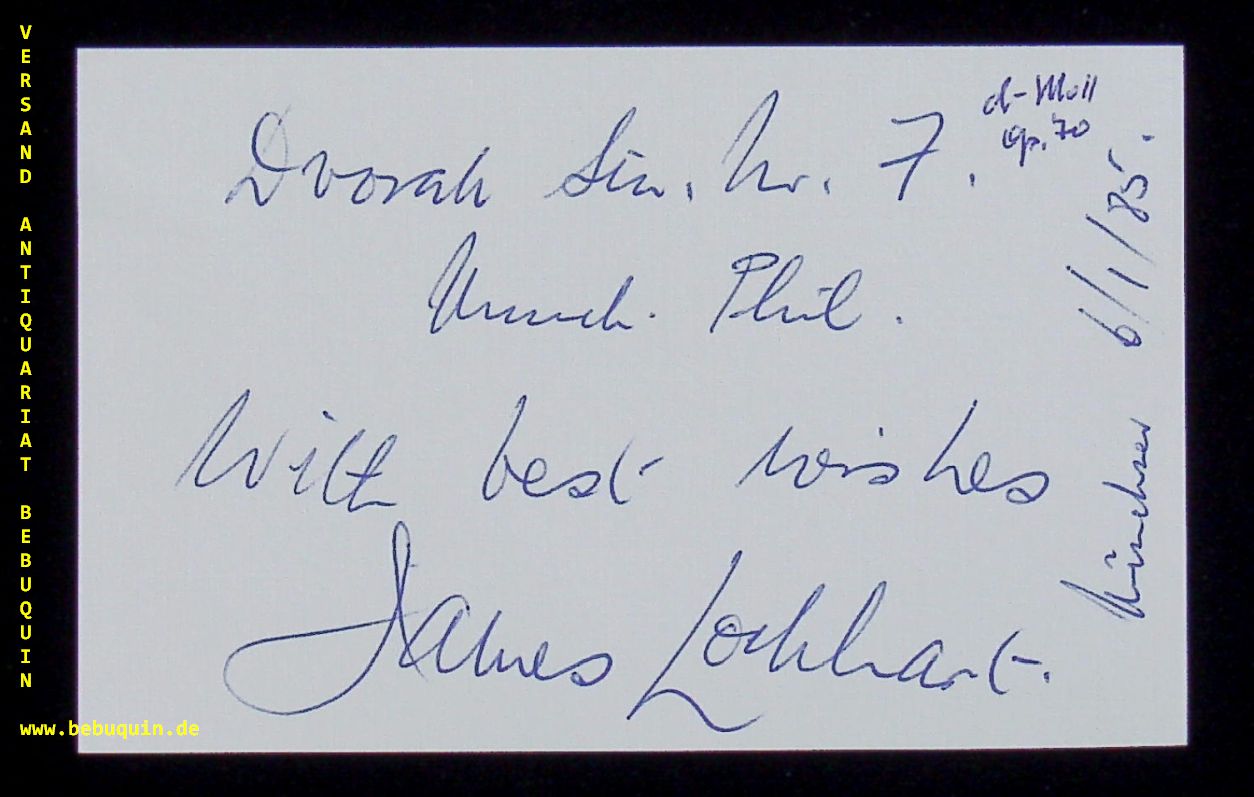 VERSAND ANTIQUARIAT BEBUQUIN
Dvorak Sin. Nr. 7.
d-Moll
op. 70
Munch. Phil.
With best wishes
James Lockhart.
München 6/1/85.
www.bebuquin.de